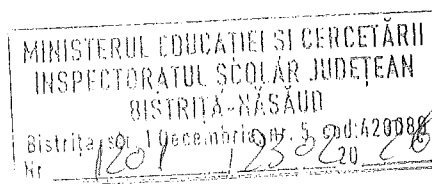 MINISTERUL EDUCAȚIEI ȘI CERCETĂRII
INSPECTORATUL ȘCOLAR JUDEȚEAN
BISTRIȚA-NĂSĂUD
Bistrița, str. 1 Decembrie, nr. 5, cod:420080
Nr. 1201 23 02 20